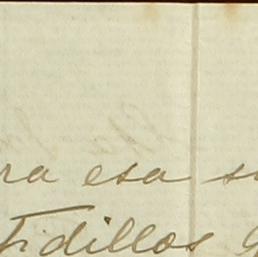 ra esa s
Tidillos